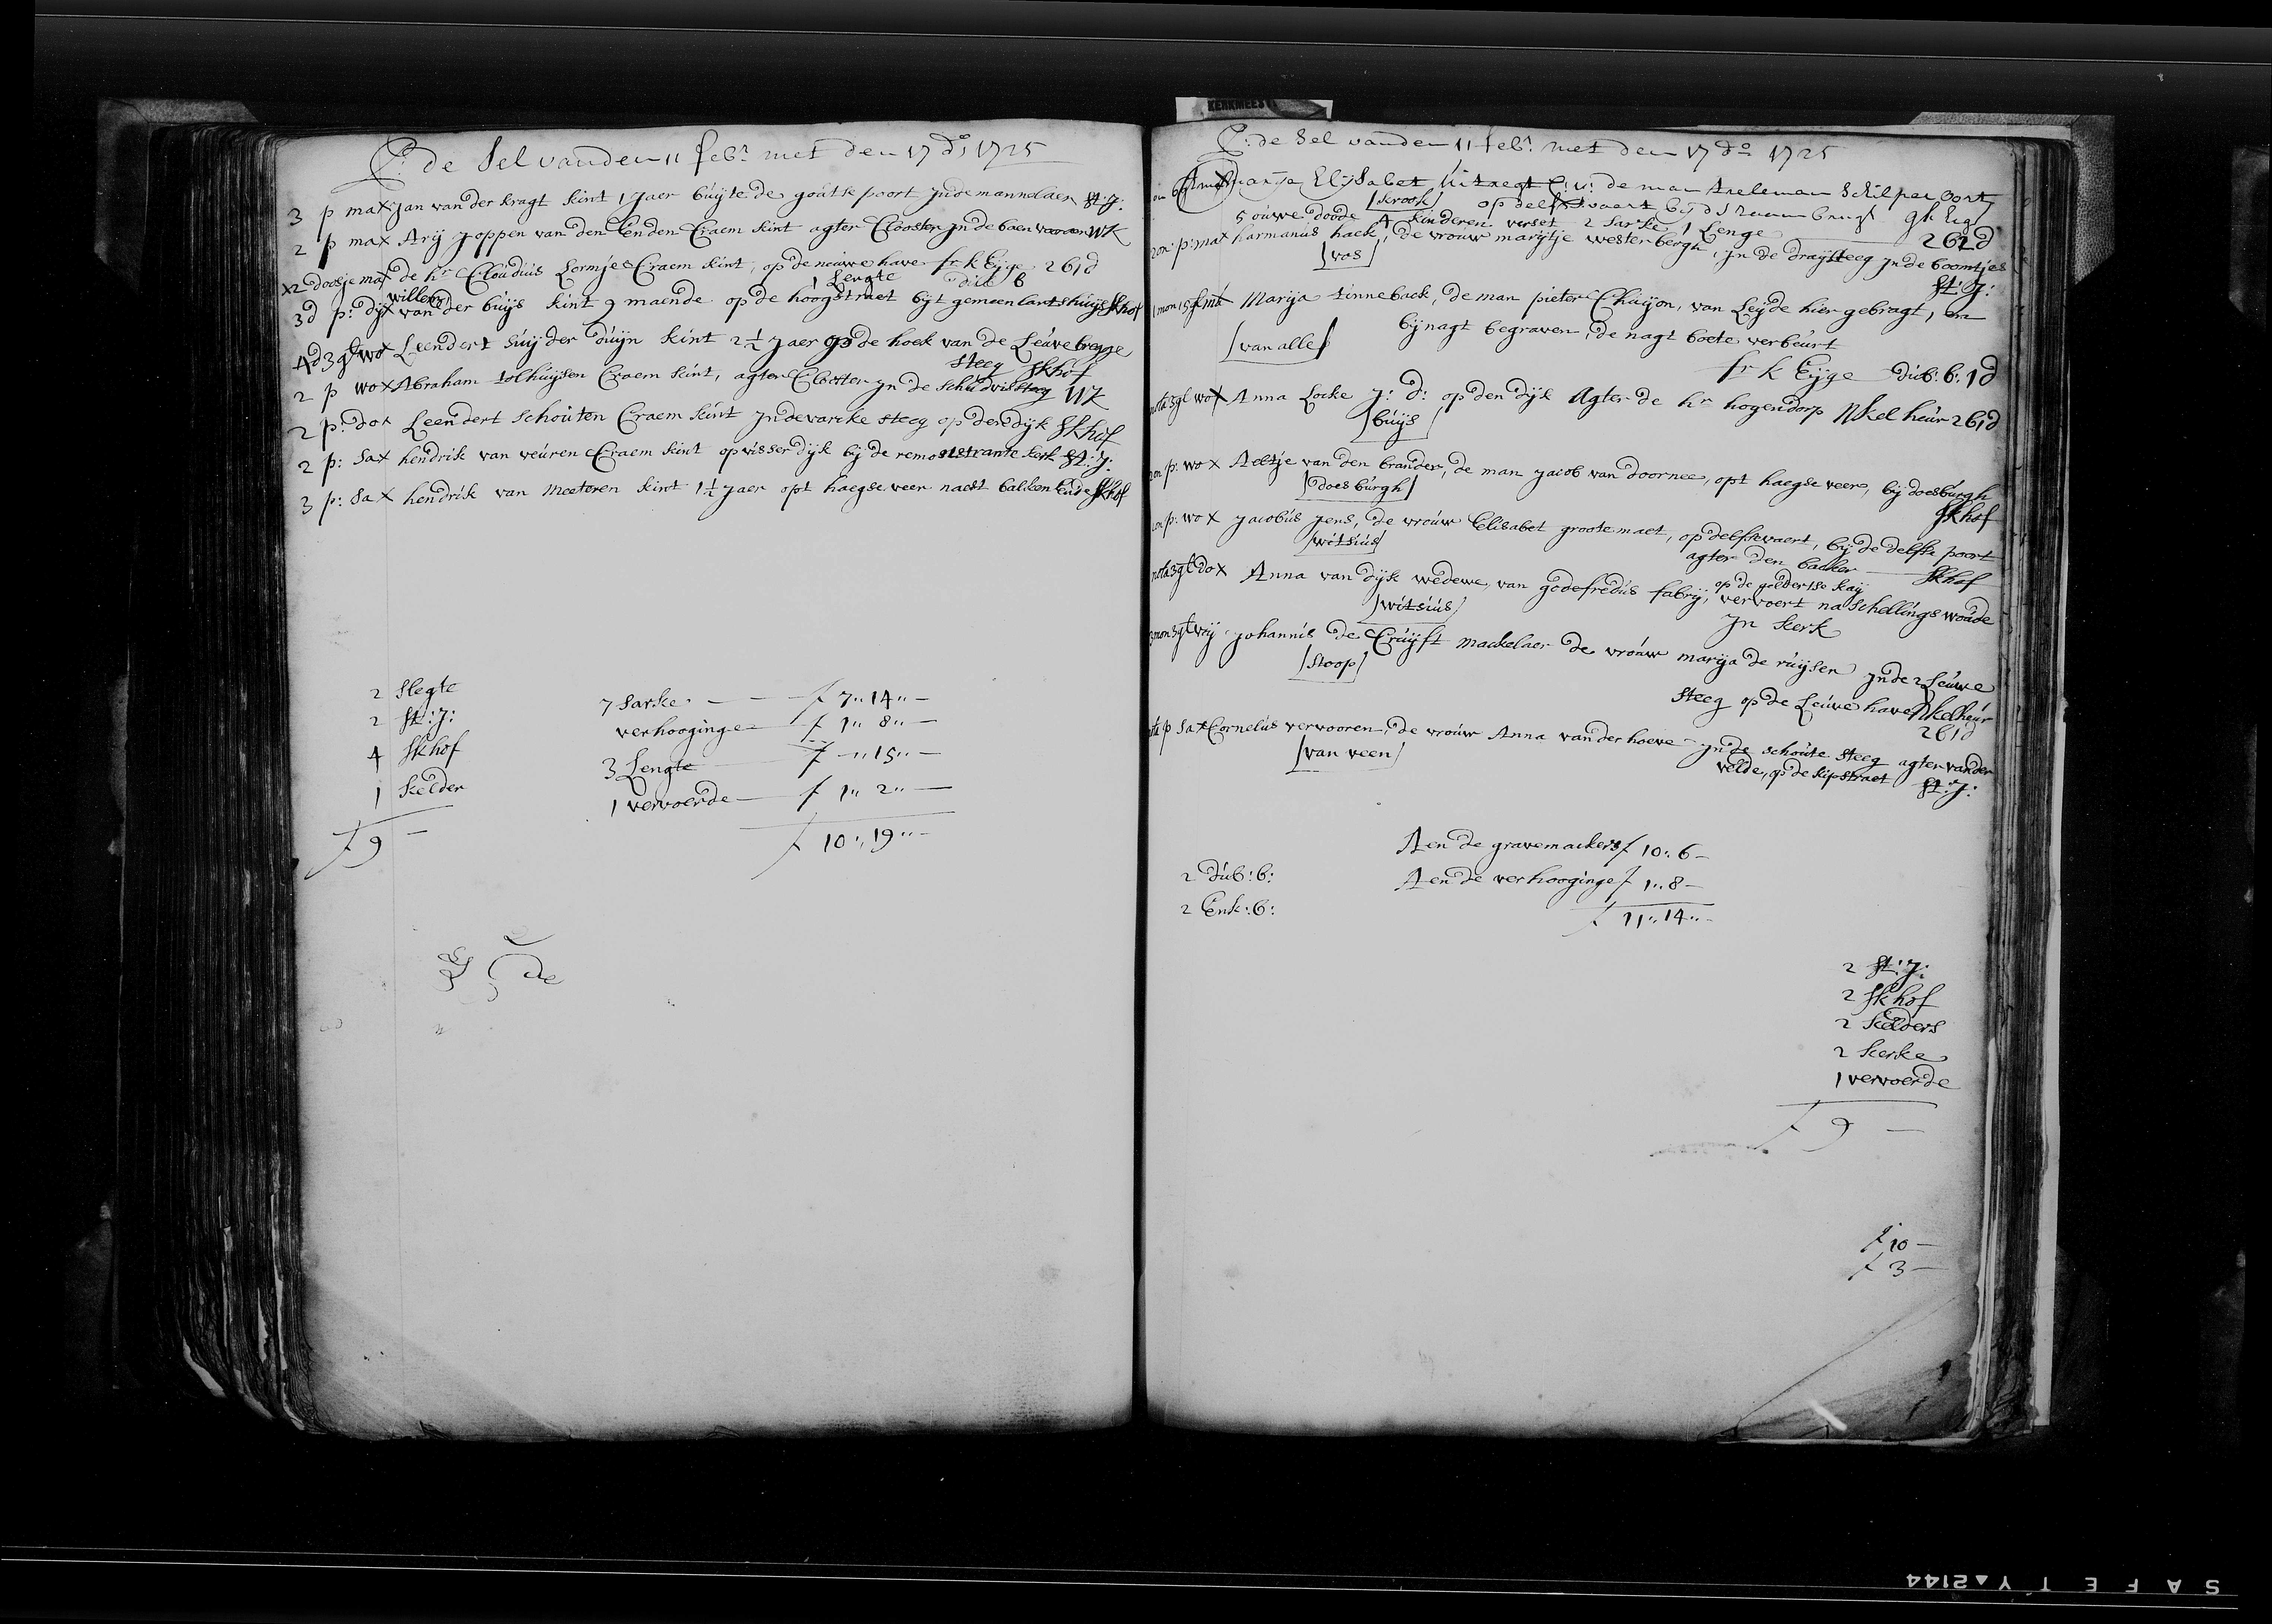 P: de Sel vanden 11 febr met den 17 do 1725
3 p max Jan vander kragt kint 1 jaer buijte de goutse poort Jnde mannelaen St: J:
2 p max Arij Joppen van den Enden Craem kint agter Clooster Jn de baen WK
x2 doosje max de hr Cloudius Lormjes Craem kint, op de nieuwe have fr k Eijge 2 b 1 d
1 Lengte dub b
willem
3d p: dijx van der buijs kint 9 maende op de hoogstraet bijt gemeenlantshuijs Skhof
4d 3gl wox Leendert Suijderduijn kint 2½ jaer op de hoek van de Leuvebregge
steeg Skhof
2 p wox Abraham tolhuijsen Craem kint, agter Clooster Jn de steeg WK
2 p: dox Leendert Schouten Craem kint Jnde varcke steeg op den dijk Skhof
2 p: Sax hendrik van weuren Craem kint op visserdijk bij de remonstrantse kerk St: J:
3 p: Sax hendrik van Meeteren kint 1½ jaer opt haegse veer naest balkenEnde Skhof
2 Slegte
2 St: J:
4 Skhof
1 kelder
f 9 —
7 Sarke — f 7,, 14,, —
verhooginge — f 1,, 8,, —
3 Lengte f —,, 15,, —
1 vervoerde — f 1,, 2,, —
f 10,, 19,, —
de
KERKMEES
P: de Sel vanden 11 febr: met den 17 do 1725
Marija Elijsabet uitregt de man Aeleman Schilper oort
[krook] op delfse vaart bij d Straeen brugh gk Eyg
5 ouwe doode 4 kinderen verset 2 Sarke 1 Lenge 2 b 2 d
2on: p: max harmanus haek, de vrouw marijtje westerbergh, Jn de draijsteeg Jnde boomtjes
[vos] St: J:
Marija tinneback, de man pieter Chuijon, van Leijde hier gebragt, en
[van alle] bij nagt begraven, de nagt boete verbeurt
fr k Eijge dub: b: 1 d
nota 3gl wox Anna Locke J: d: op den dijk Agter de hr hogendorp Nkel heur 2 b 1 d
[buijs]
on p: wox Aeltje van den brander, de man Jacob van doornee, opt haegse veer, bij doesburgh
[doesburgh] Skhof
on p: wox Jacobus Jens, de vrouw Elisabet grootemaet, op delfsevaert, bij de delfse poort
[witsius] agter den backer — Skhof
op de goldertse kaij
nota 3gl dox Anna van dijk wedewe, van godefredus fabrij, vervoert na Schellingswoude
[witsius] Jn kerk
3mon 3gl vrij Johannis de Cruijft mackelaer de vrouw marija de ruijser Jnde 2 Leuwe
[stoop] steeg op de Leuwe have Nkelheur
2 b 1 d
p Sax Cornelus vervooren, de vrouw Anna vander hoeve Jnde schoute steeg agter vander
[van veen] velde, op de kipstraet St: J:
Aen de gravemackers f 10,, 6 —
Aen de verhooginge f 1,, 8 —
f 11,, 14,, —
2 dub: b:
2 Enk: b:
2 St: J:
2 Skhof
2 kelders
2 kerke
1 vervoerde
f 9 —
f 10 —
f 3 —
SAFETY▲2144